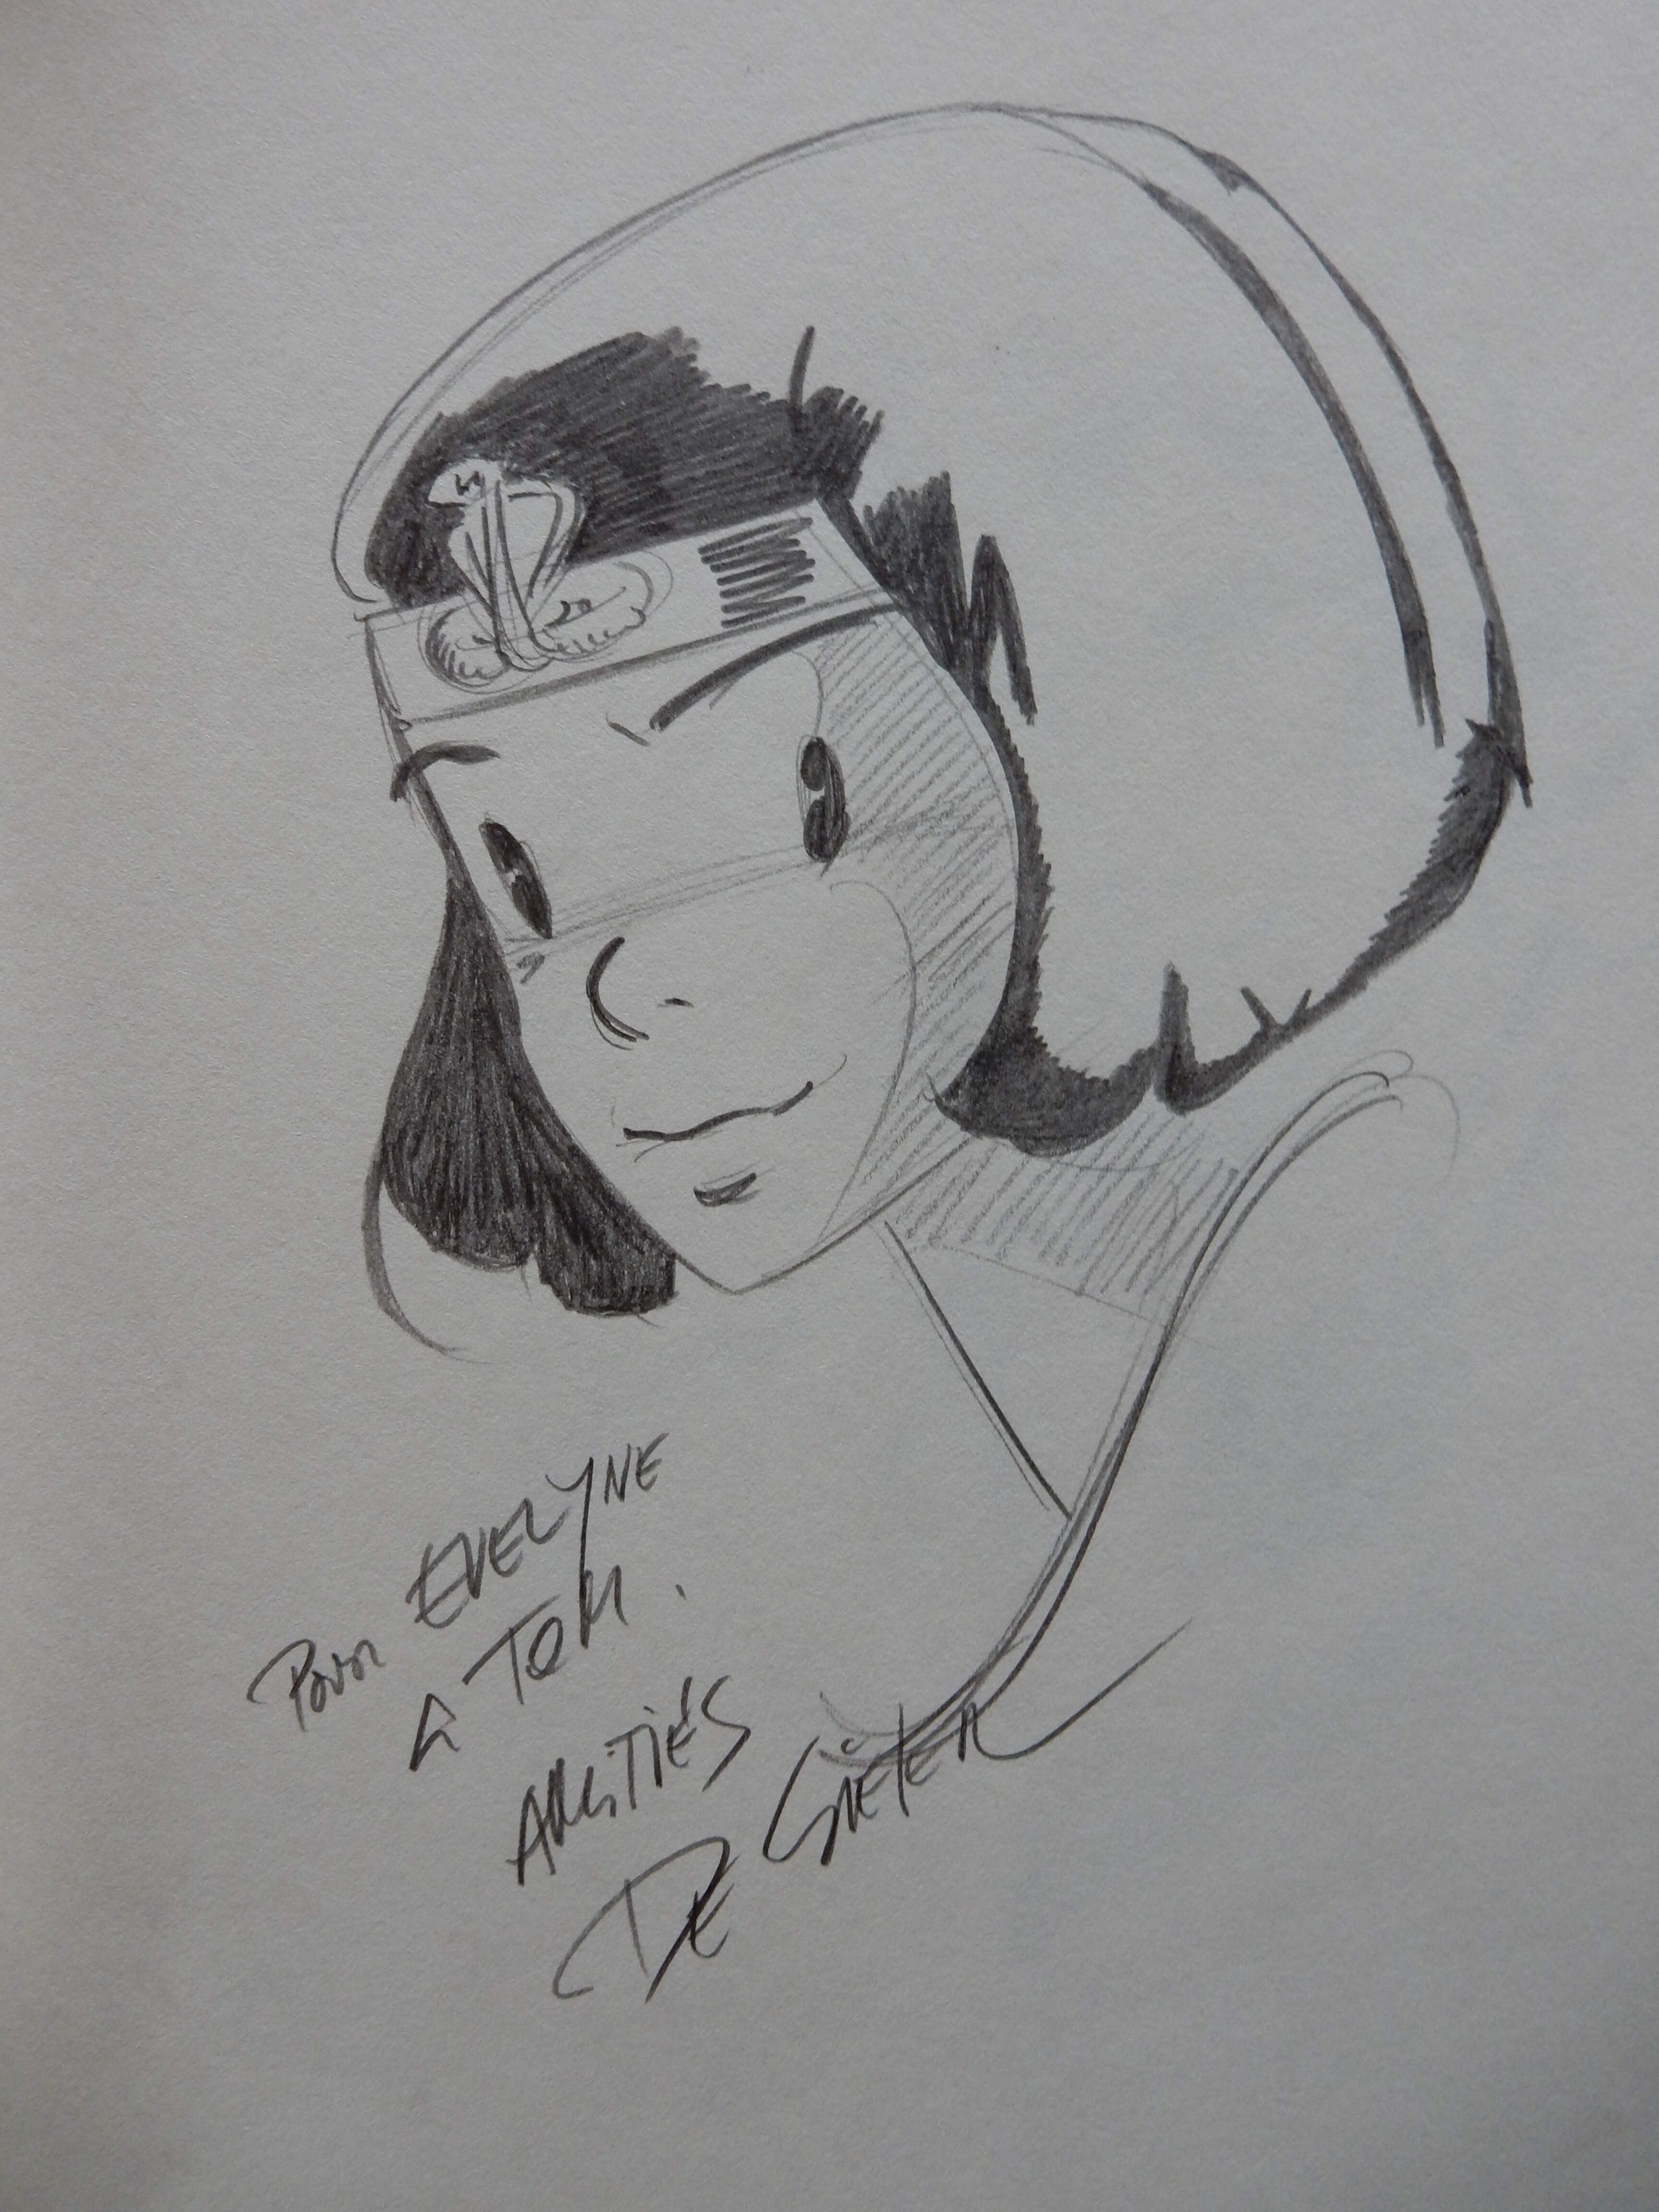 Pour EVELYNE
A TOM.
AMITIÉS
DE GIETER